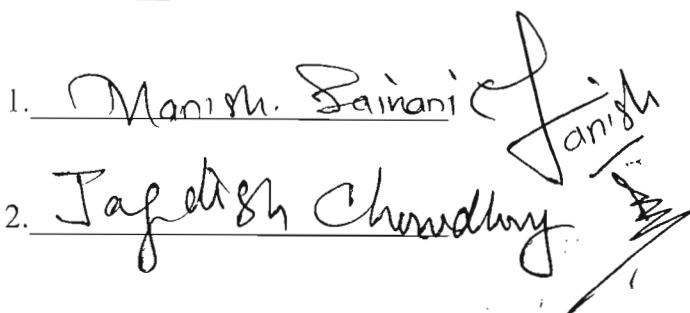 1. Manish. Sainani Manish
2. Jagdish Chowdhry